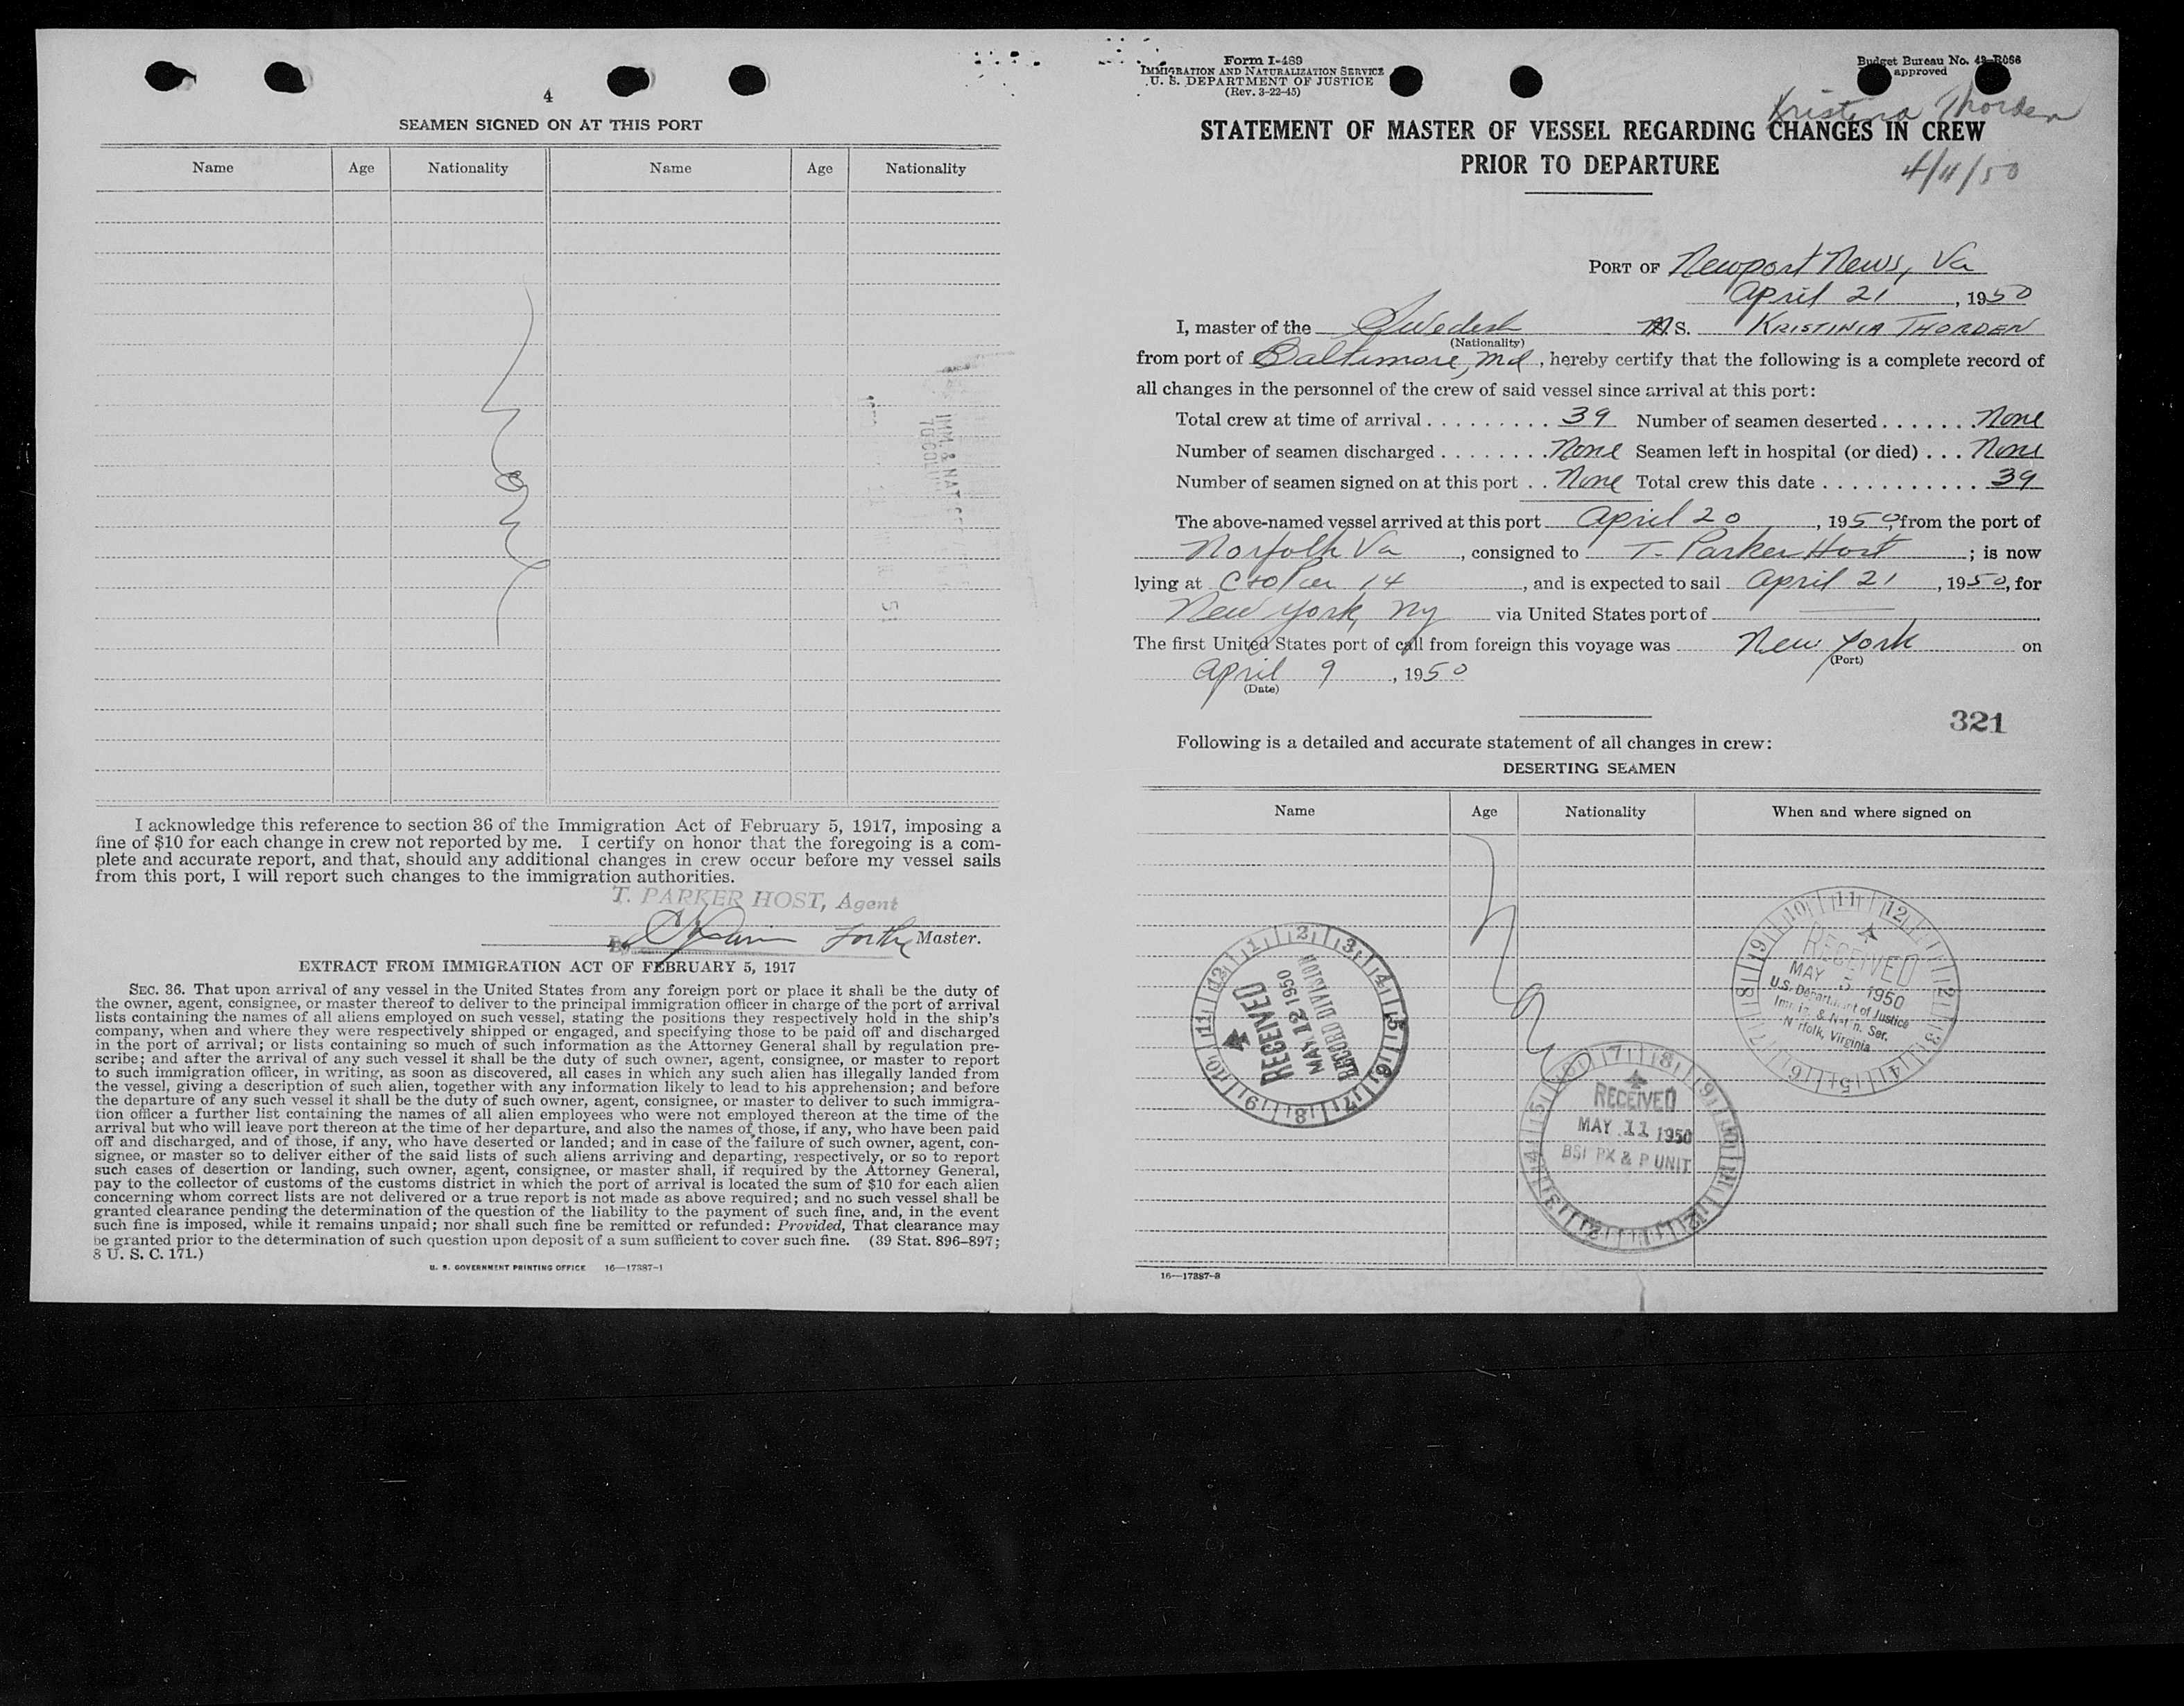 4
SEAMEN SIGNED ON AT THIS PORT
Name Age Nationality Name Age Nationality
IMM & NAT
I acknowledge this reference to section 36 of the Immigration Act of February 5, 1917, imposing a
fine of $10 for each change in crew not reported by me. I certify on honor that the foregoing is a com-
plete and accurate report, and that, should any additional changes in crew occur before my vessel sails
from this port, I will report such changes to the immigration authorities.
T. PARKER HOST, Agent
By for the Master.
EXTRACT FROM IMMIGRATION ACT OF FEBRUARY 5, 1917
SEC. 36. That upon arrival of any vessel in the United States from any foreign port or place it shall be the duty of
the owner, agent, consignee, or master thereof to deliver to the principal immigration officer in charge of the port of arrival
lists containing the names of all aliens employed on such vessel, stating the positions they respectively hold in the ship's
company, when and where they were respectively shipped or engaged, and specifying those to be paid off and discharged
in the port of arrival; or lists containing so much of such information as the Attorney General shall by regulation pre-
scribe; and after the arrival of any such vessel it shall be the duty of such owner, agent, consignee, or master to report
to such immigration officer, in writing, as soon as discovered, all cases in which any such alien has illegally landed from
the vessel, giving a description of such alien, together with any information likely to lead to his apprehension; and before
the departure of any such vessel it shall be the duty of such owner, agent, consignee, or master to deliver to such immigra-
tion officer a further list containing the names of all alien employees who were not employed thereon at the time of the
arrival but who will leave port thereon at the time of her departure, and also the names of those, if any, who have been paid
off and discharged, and of those, if any, who have deserted or landed; and in case of the failure of such owner, agent, con-
signee, or master so to deliver either of the said lists of such aliens arriving and departing, respectively, or so to report
such cases of desertion or landing, such owner, agent, consignee, or master shall, if required by the Attorney General,
pay to the collector of customs of the customs district in which the port of arrival is located the sum of $10 for each alien
concerning whom correct lists are not delivered or a true report is not made as above required; and no such vessel shall be
granted clearance pending the determination of the question of the liability to the payment of such fine, and, in the event
such fine is imposed, while it remains unpaid; nor shall such fine be remitted or refunded: Provided, That clearance may
be granted prior to the determination of such question upon deposit of a sum sufficient to cover such fine. (39 Stat. 896–897;
8 U. S. C. 171.)
U. S. GOVERNMENT PRINTING OFFICE 16—17387-1
Form I-489
IMMIGRATION AND NATURALIZATION SERVICE
U. S. DEPARTMENT OF JUSTICE
(Rev. 3-22-45)
Budget Bureau No. 43-R066
approved
Kristina Thorden
STATEMENT OF MASTER OF VESSEL REGARDING CHANGES IN CREW
PRIOR TO DEPARTURE
4/11/50
PORT OF Newport News, Va
April 21, 1950
I, master of the Swedish M S. KRISTINIA THORDEN
(Nationality)
from port of Baltimore, Md, hereby certify that the following is a complete record of
all changes in the personnel of the crew of said vessel since arrival at this port:
Total crew at time of arrival . . . . . . . . . 39 Number of seamen deserted . . . . . . . None
Number of seamen discharged . . . . . . . . None Seamen left in hospital (or died) . . . None
Number of seamen signed on at this port . . None Total crew this date . . . . . . . . . . . . 39
The above-named vessel arrived at this port April 20, 1950, from the port of
Norfolk Va, consigned to T. Parker Host; is now
lying at C+O Pier 14, and is expected to sail April 21, 1950, for
New York, NY via United States port of
The first United States port of call from foreign this voyage was New York on
(Port)
April 9, 1950
(Date)
321
Following is a detailed and accurate statement of all changes in crew:
DESERTING SEAMEN
Name Age Nationality When and where signed on
RECEIVED
MAY 5 1950
U.S. Department of Justice
Imm. & Nat'n. Ser.
Norfolk, Virginia
RECEIVED
MAY 12 1950
RECORD DIVISION
RECEIVED
MAY 11 1950
UNIT
16—17387-3